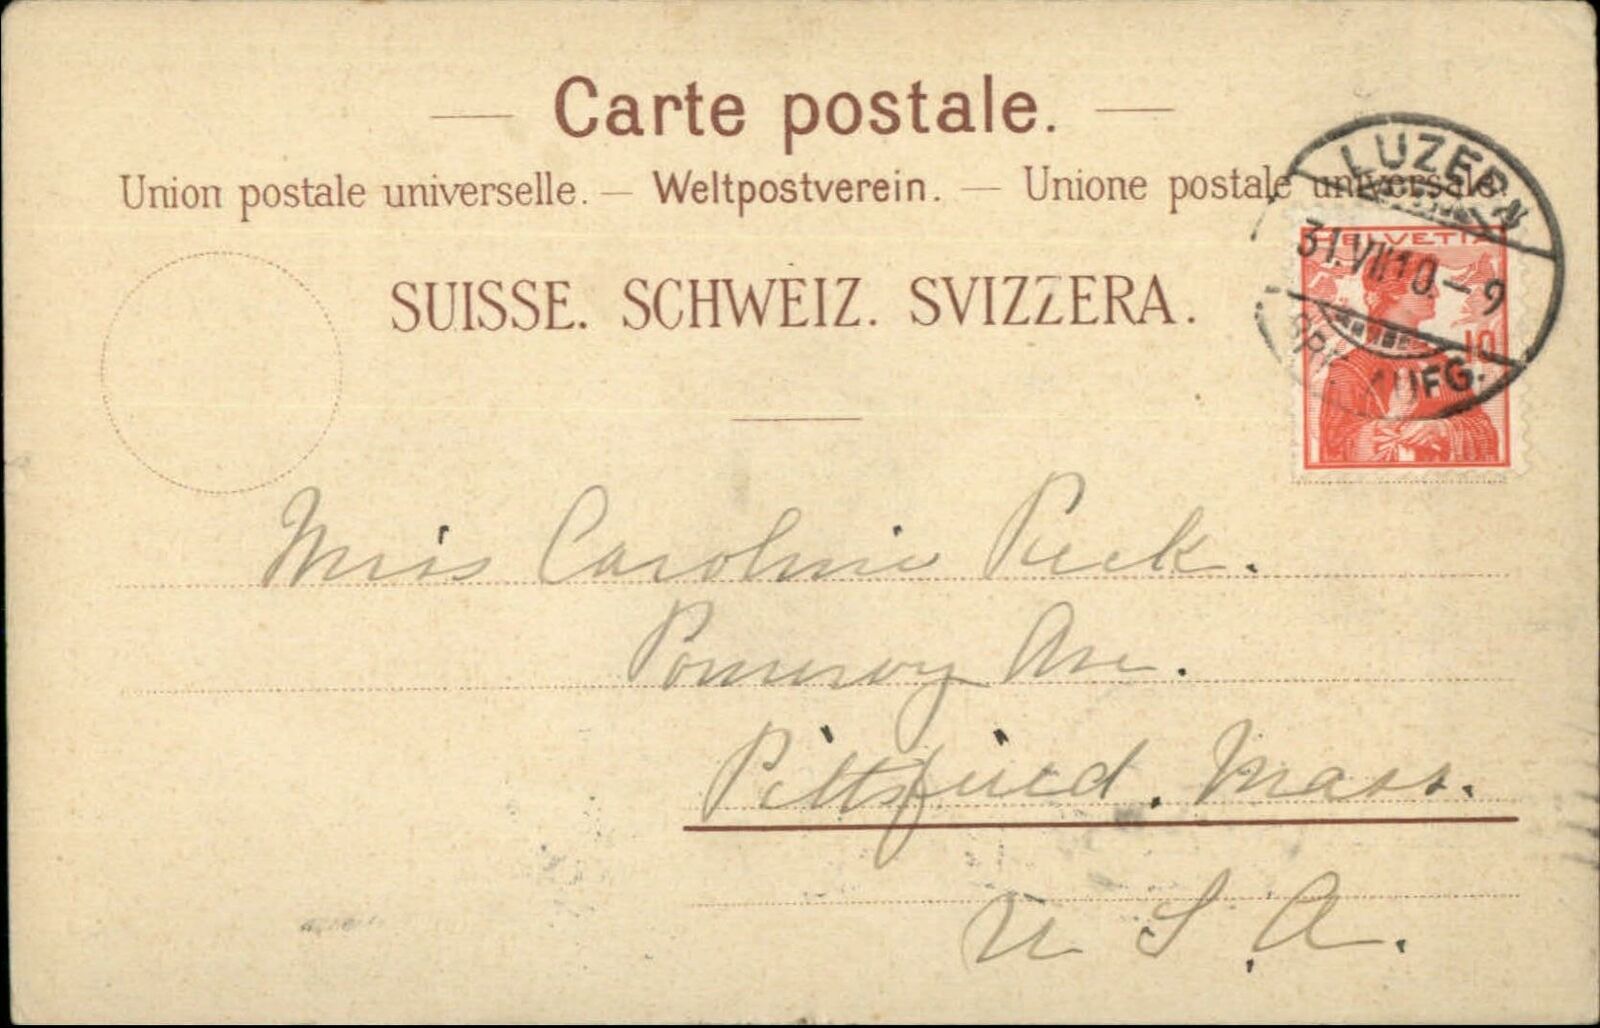 Carte postale.
Union postale universelle. — Weltpostverein. — Unione postale universale.
SUISSE. SCHWEIZ. SVIZZERA.
LUZERN
31.VII.10.–9
AUFG.
HELVETIA
10
Miss Caroline Peck.
Pomeroy Ave.
Pittsfield. Mass.
U. S. A.